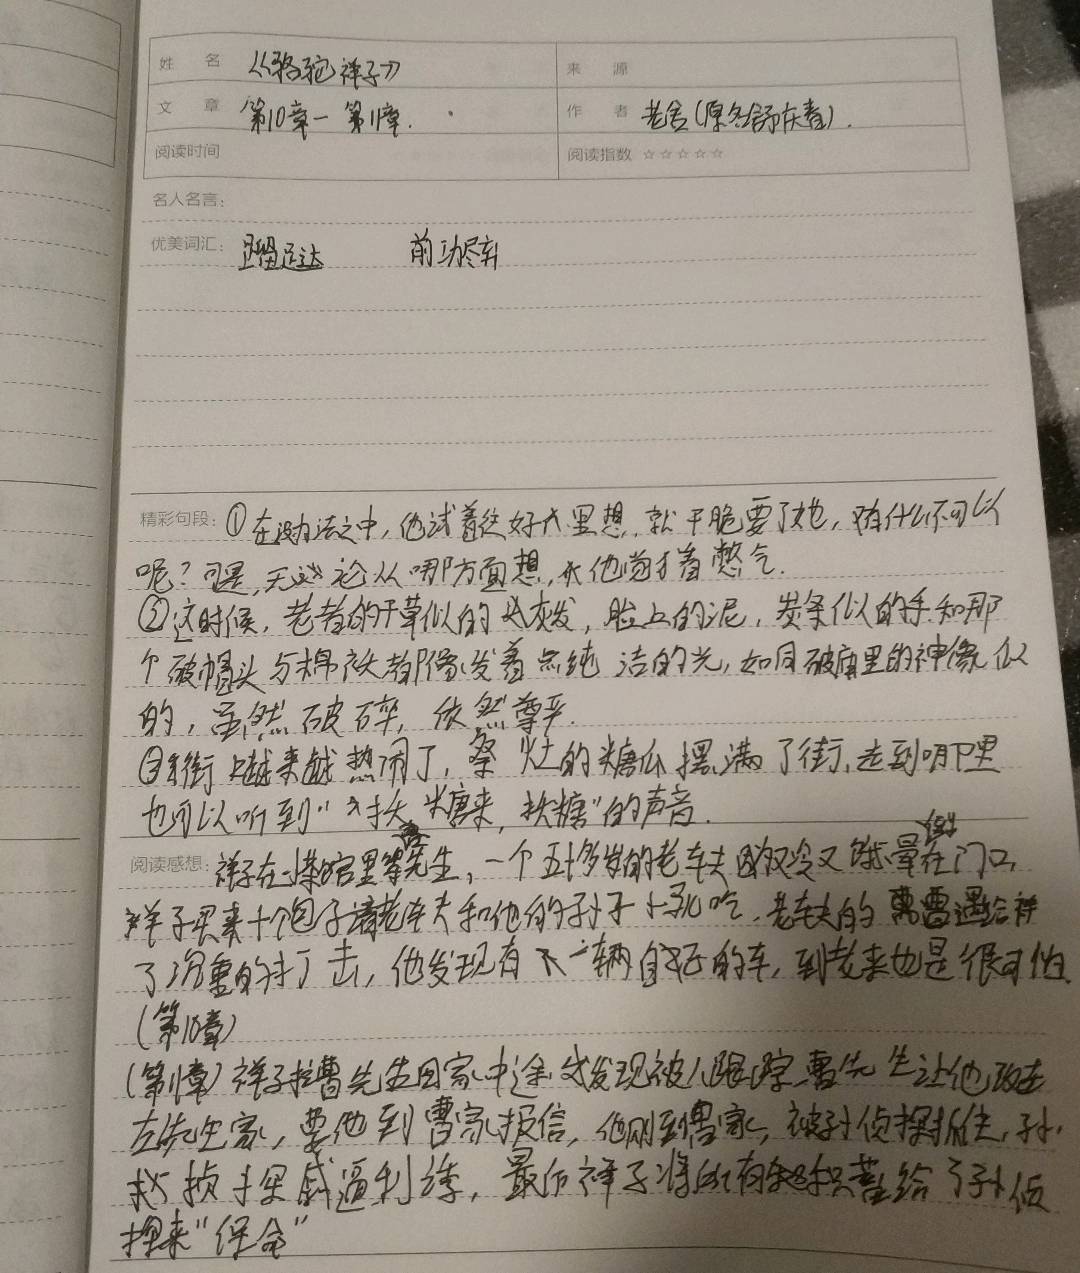 姓 名 《骆驼祥子》 来 源
文 章 第10章一第11章. 作 者 老舍(原名舒庆春).
阅读时间 阅读指数 ☆☆☆☆☆
名人名言:
优美词汇: 蹓达 前功尽弃
精彩句段: ①在没办法之中,他试着往好大里想,就干脆要了她,有什么不可以
呢?可是,无论从哪方面想,他觉着憋气.
②这时候,老者的干草似的灰发,脸上的泥,炭条似的手,和那
个破帽头与棉袄都像发着点纯洁的光,如同破庙里的神像似
的,虽然破碎,依然尊严.
③街上越来越热闹了,祭灶的糖瓜摆满了街,走到哪里
也可以听到"扶糖来,扶糖"的声音.
阅读感想: 祥子在小茶馆里等曹先生,一个五十多岁的老车夫因又冷又饿晕倒在门口,
祥子买来十个包子请老车夫和他的孙子小马吃.老车夫的遭遇给祥
了沉重的打击,他发现有一辆自己的车,到老来也是很可怕.
(第10章)
(第11章)祥子拉曹先生回家,中途发现被人跟踪,曹先生让他改去
左先生家,要他到曹家报信,他刚到曹家,被孙侦探抓住,孙
侦探威逼利诱,最后祥子将所有积蓄给了孙侦
探来"保命"